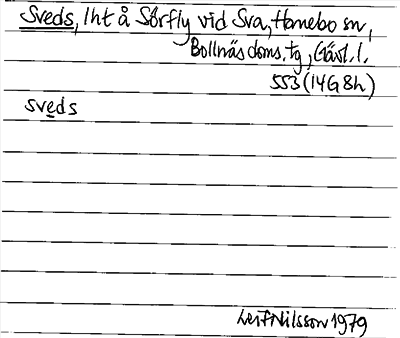 Sveds, lht å Sörfly vid Sva, Hanebo sn,
Bollnäs doms. tg, Gävl. l.
553 (14G8h)
sveds
Leif Nilsson 1979